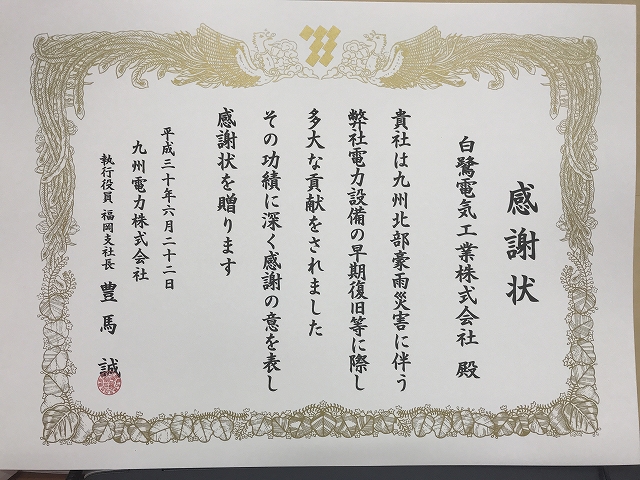 感謝状
白鷺電気工業株式会社 殿
貴社は九州北部豪雨災害に伴う
弊社電力設備の早期復旧等に際し
多大な貢献をされました
その功績に深く感謝の意を表し
感謝状を贈ります
平成三十年六月二十二日
九州電力株式会社
執行役員 福岡支社長 豊馬 誠